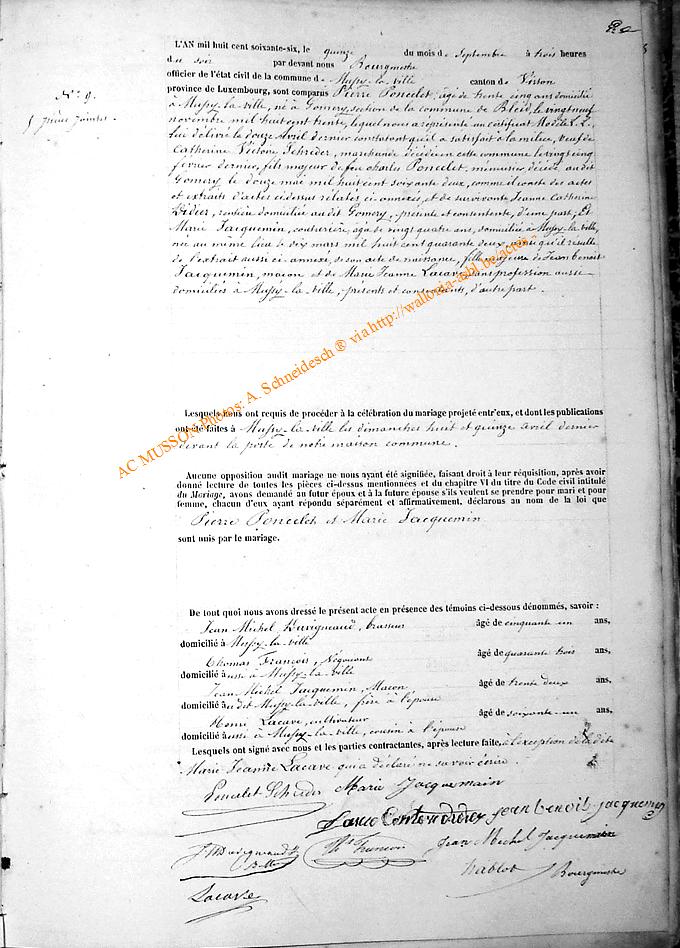 L'AN mil huit cent soixante-six, le quinze du mois de Septembre à trois heures
du soir par devant nous Bourgmestre
officier de l'état civil de la commune de Mussy-la-ville canton de Virton
province de Luxembourg, sont comparus Pierre Poncelet, âgé de trente cinq ans domicilié
N° 9.
à Mussy-la-ville, né à Gomery section de la commune de Bleid, le vingt neuf
novembre mil huit cent trente, lequel nous a représenté un certificat Modèle L.
lui délivré le douze Avril dernier constatant qu'il a satisfait à la milice, veuf de
Catherine Victoire Schreder, marchande décédée en cette commune le vingt cinq
février dernier, fils majeur de feu Charles Poncelet, ménusier décédé audit
Gomery le douze mai mil huit cent soixante deux, comme il conste des actes
et extraits d'actes ci-dessus relatés ci-annexés, et de survivante Jeanne Catherine
Didier, rentière domiciliée audit Gomery, présente et consentante, d'une part, Et
Marie Jacquemin, couturière, âgée de vingt quatre ans, domiciliée à Mussy-la-ville,
née au même lieu le dix mars mil huit cent quarante deux, ainsi qu'il résulte
de l'extrait aussi ci-annexé, de son acte de naissance, fille majeure de Jean benoit
Jacquemin, maçon et de Marie Jeanne Lacave sans profession aussi
domiciliés à Mussy-la-ville, présents et consentants, d'autre part.
AC MUSSON Photos: A. Schneidesch ® via http://wallonia-asbl.be/actes
Lesquels nous ont requis de procéder à la célébration du mariage projeté entr'eux, et dont les publications
ont été faites à Mussy-la-ville les dimanches huit et quinze avril dernier
devant la porte de notre maison commune.
Aucune opposition audit mariage ne nous ayant été signifiée, faisant droit à leur réquisition, après avoir
donné lecture de toutes les pièces ci-dessus mentionnées et du chapitre VI du titre du Code civil intitulé
du Mariage, avons demandé au futur époux et à la future épouse s'ils veulent se prendre pour mari et pour
femme, chacun d'eux ayant répondu séparément et affirmativement, déclarons au nom de la loi que
Pierre Poncelet et Marie Jacquemin
sont unis par le mariage.
De tout quoi nous avons dressé le présent acte en présence des témoins ci-dessous dénommés, savoir :
Jean Michel brasseur âgé de cinquante un ans,
domicilié à Mussy-la-ville
Thomas François, Négociant âgé de quarante trois ans,
domicilié aussi à Mussy-la-ville
Jean Michel Jacquemin, Maçon âgé de trente deux ans,
domicilié audit Mussy-la-ville, frère à l'épouse
Henri Lacave, cultivateur âgé de soixante-un ans,
domicilié aussi à Mussy-la-ville, cousin à l'épouse
Lesquels ont signé avec nous et les parties contractantes, après lecture faite, à l'exception de la dite
Marie Jeanne Lacave qui a déclaré ne savoir écrire.
Poncelet Schreder Marie Jacquemain
jean benoit jacquemin
Th. Francois Jean Michel Jacquemin
Nablot Bourgmestre
Lacave